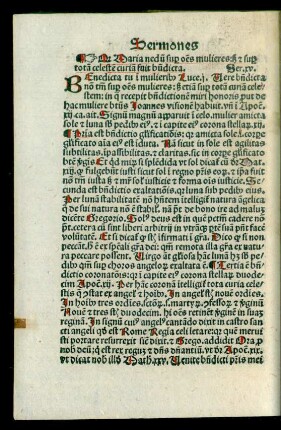 Sermones
¶ Qz Maria nedū sup oēs mulieres hȝ ⁊ sup
totā celestē curiā fuit bn̄dicta. Ser. xv.
Benedicta tu i mulieribꝰ Luce. j. Vere bn̄dicta
nō tm̄ sup oēs mulieres: sȝ etiā sup totā curiā cele-
stem: in q̄ recepit bn̄dictionē miri honoris put de
hac muliere btūs Joannes visionē habuit. vn̄ i Apoc̄.
xij. ca. ait. Signū magnū apparuit i celo. mulier amicta
sole ⁊ luna sb pedibꝰ eiꝰ. ⁊ i capite eiꝰ corona stellaꝝ. xij.
¶ Pria est bn̄dictio glificatōis: qꝛ amicta sole. i. corpe
glificato aīa eiꝰ est idui. Nā sicut in sole est agilitas
subtilitas. ipassibilitas. ⁊ claritas. sic in corpe glificato
bt̄e ꝟgīs Et qd miꝝ si splēdida vt sol dicat̄ cū d̄r Mat.
xiij. q fulgebūt iusti sicut sol i regno pīis eoꝝ. ⁊ ista fuit
nō tm̄ iusta sȝ ⁊ mr̄ solꝭ iusticie ⁊ forma oīs iusticie. Se-
cunda est bn̄dictio exaltatōis. qꝛ luna sub pedibꝰ eius.
Per lunā stabilitatē nō hn̄tem itelligit̄ natura āgelica
q de sui natura nō ē stabil. nā pt̄ de bono ire ad malum
docente Gregorio. Solꝰ deus est in quē petm̄ cadere nō
pt. cetera cū sint liberi arbitrij in vtrāqꝫ ptē suā pnt face̅
volūtatē. Et si dicaꝭ qꝛ sē firmati i gr̄a. Dico qꝛ si non
peccāt. hȝ ē ex spēali gr̄a dei: qm̄ remota illa gr̄a ex natu-
ra peccare possent. Virgo āt gliosa hāc lunā hȝ sb pe-
dibꝰ qm̄ sup choros angeloꝝ exaltata ē. ¶ Tertia est bn̄
dictio coronatōis: qꝛ i capite eiꝰ corona stellaꝝ duode-
cim Apoc̄. xij. Per hāc coronā itelligit̄ tota curia celestis
q ꝯstat ex angeł ⁊ hoībꝰ. In angeł st̄ nouē ordines.
In hoībꝰ tres ordīes scȝ ꝯfoꝝ. martyꝝ. ꝯfessoꝝ. ⁊ ꝟginū
Nouē ⁊ tres st̄ duodecim. hi oēs retinēt ꝟginē in suaꝫ
reginā. In signū eiꝰ angeł cantādo dixit in castro san
cti angeli qd est Rome Regīa celi letare: qꝛ quē meruī-
sti portare resurrexit sic̄ dixit ⁊c̄. Grego. addidit Ora p
nob deū: q est rex regum ⁊ dn̄s dn̄antiū. vt d̄r Apoc̄. xix.
vt dicat nob illd Math. xxv. Venite bn̄dicti pr̄is mei